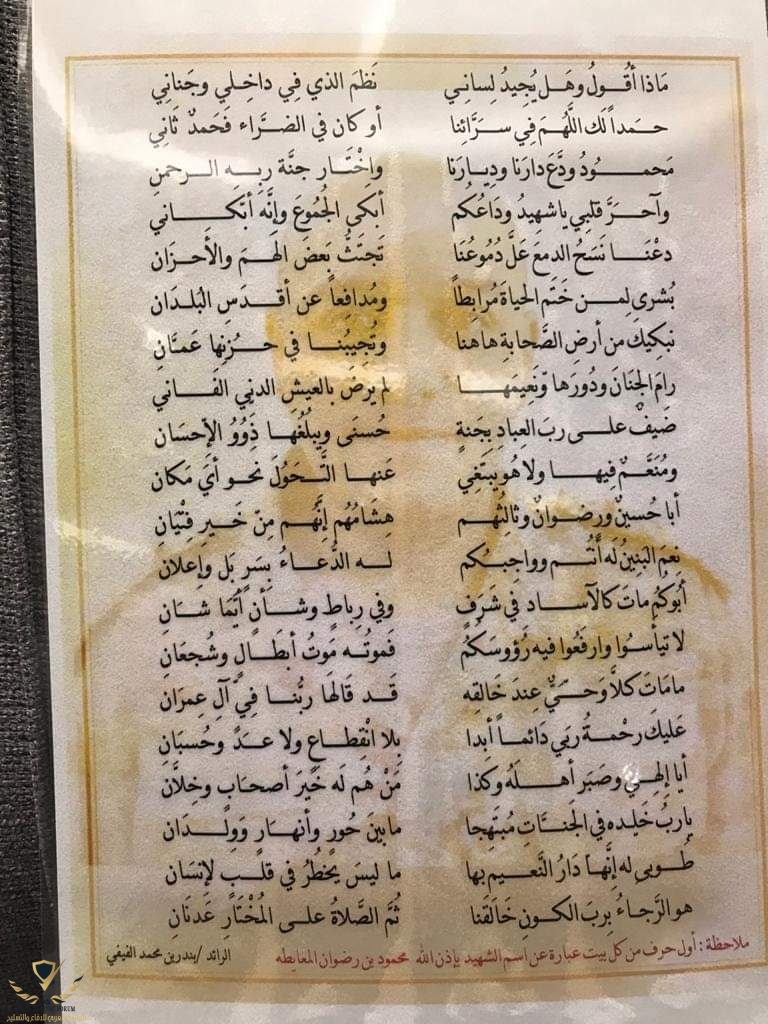 مَاذا أقُولُ وهَل يُجِيدُ لِسانِي نَظمَ الذي فِي داخِلِي وجَنانِي
حمداً لَك اللَّهُمَ فِي سَرَّائِنا أو كان في الضرَّاء فَحَمدٌ ثانِي
مَحمودُ ودَّعَ دارَنا ودِيارَنا واِخْتَار جنَّة ربِه الرحمنِ
وآحرَّ قلبِي يا شهِيدُ وداعُكُم أبكى الجُموعَ وإنَّهَ أبْكَانِي
دعْنَا نسَحُ الدمِعَ عَلَّ دُمُوعُنَا تَجتَثُّ بَعضَ الهمَ والأَحزَان
بُشرى لِمن خَتَم الحياةَ مُرابِطاً ومُدافِعاً عن أقدَسِ البُلدَان
نبكِيكَ من أرضِ الصَّحابةِ هاهنا وتُجِيبُنا في حُزنِها عَمَّانِ
رامَ الجَنَانَ ودُورَها ونَعِيمَها لم يرضَ بالعيشِ الدنِي الفَاني
ضَيفٌ على ربَ العِبادِ بِجَنةٍ حُسنَى ويبلُغُها ذَوُوُ الإحسَان
ومُنَعَّمٌ فِيها ولا هُو يبتَغِي عَنها التَّحَوُلَ نحو أيَ مَكان
أبا حُسينٌ ورضوانٌ وثالِثُهم هِشَامُهُم إنَّهُم مِنّ خَيرِ فِتْيَانِ
نِعمَ البَنِينُ لَه أنتُم وواجبكُم له الدُّعاءُ بِسَرٍ بَل وإعلان
أبُوكُمُ ماتَ كالآساد في شَرَفٍ وفي رِباطٍ وشأنٍ أيَّمَا شانِ
لا تيأسُوا وارفَعُوا فيه رُؤوسَكُمُ فَموتُه مَوتُ أبطَالٍ وشُجعَانِ
مامَاتَ كلاَّ وَحَيٌّ عِندَ خَالقِه قَد قَالهَا ربُّنا فِي آلِ عِمرَان
عَليكَ رحْمةُ ربَي دَائماً أبدا بِلا انْقِطاعٍ ولا عدَ وحُسبَانِ
أيا إلهِي وصَبَر أهلَهُ وكَذا مَنْ هُم لَه خَيرَ أصحَابٍ وخِلاَّنِ
يارَبُ خَلِده في الجَنَّاتِ مُبتَهِجا مابينَ حُورٍ وأنهَارٍ وَوِلدَان
طُوبى له إنَّها دَارُ النَّعيمِ بها ما ليسَ يَخطُرُ في قلبٍ لإنسَان
هو الرَّجاءُ بِربَ الكونِ خَالَقَنا ثُمَّ الصَّلاةُ على المُختَارِ عَدنَانِ
ملاحظة : أول حرف من كل بيت عبارة عن اسم الشهيد بإذن الله محمود بن رضوان المعايطه الرائد / بندر بن محمد الفيفي